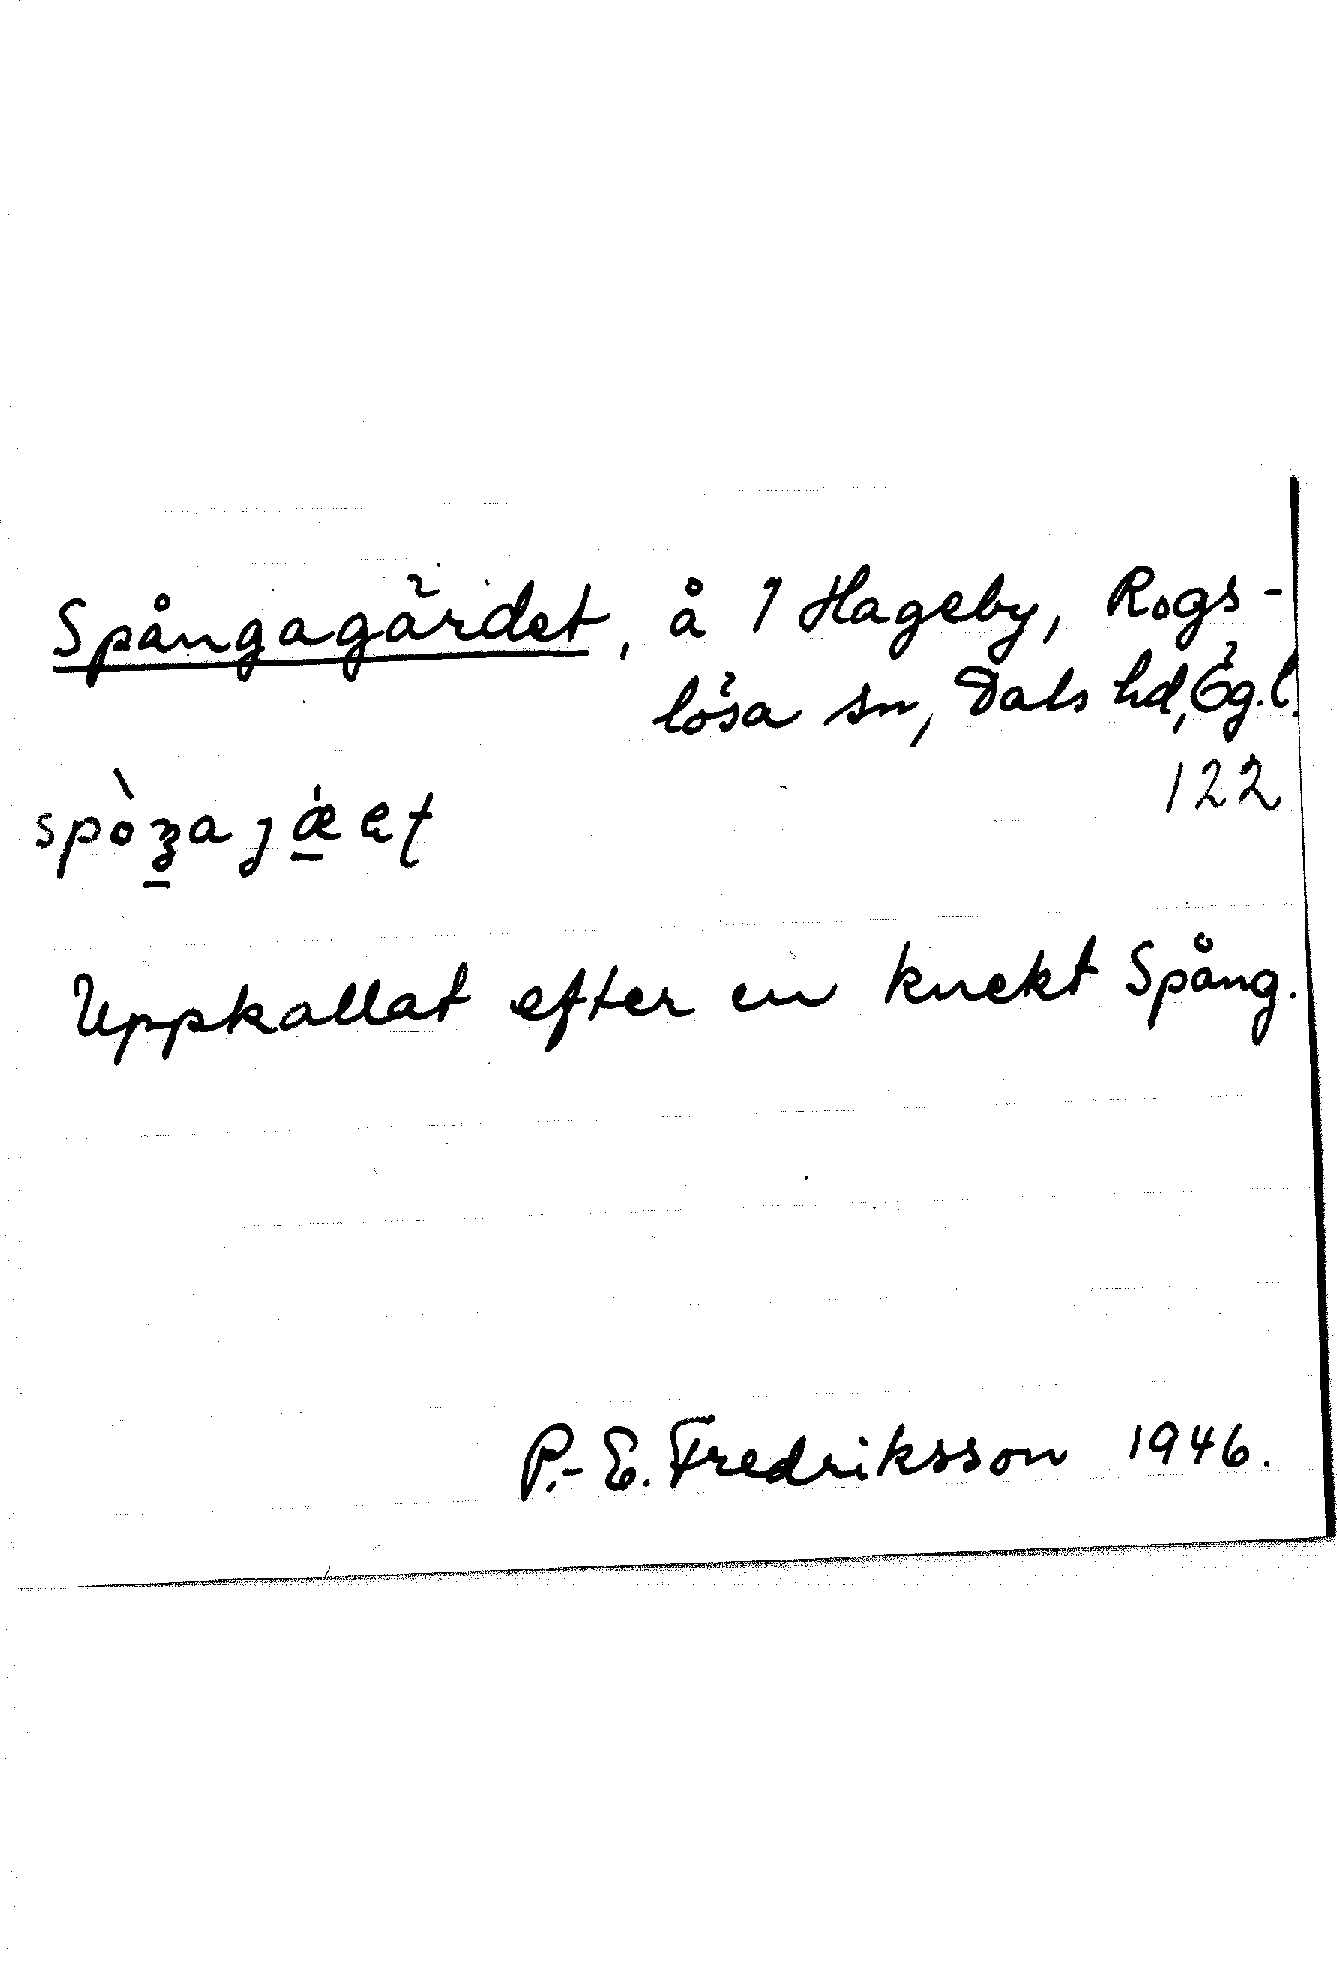 Spångagärdet, å 1 Hageby, Rogs-
lösa sn, Dals hd, Ög.l.
122
Uppkallat efter en knekt Spång.
P.-E. Fredriksson 1946.